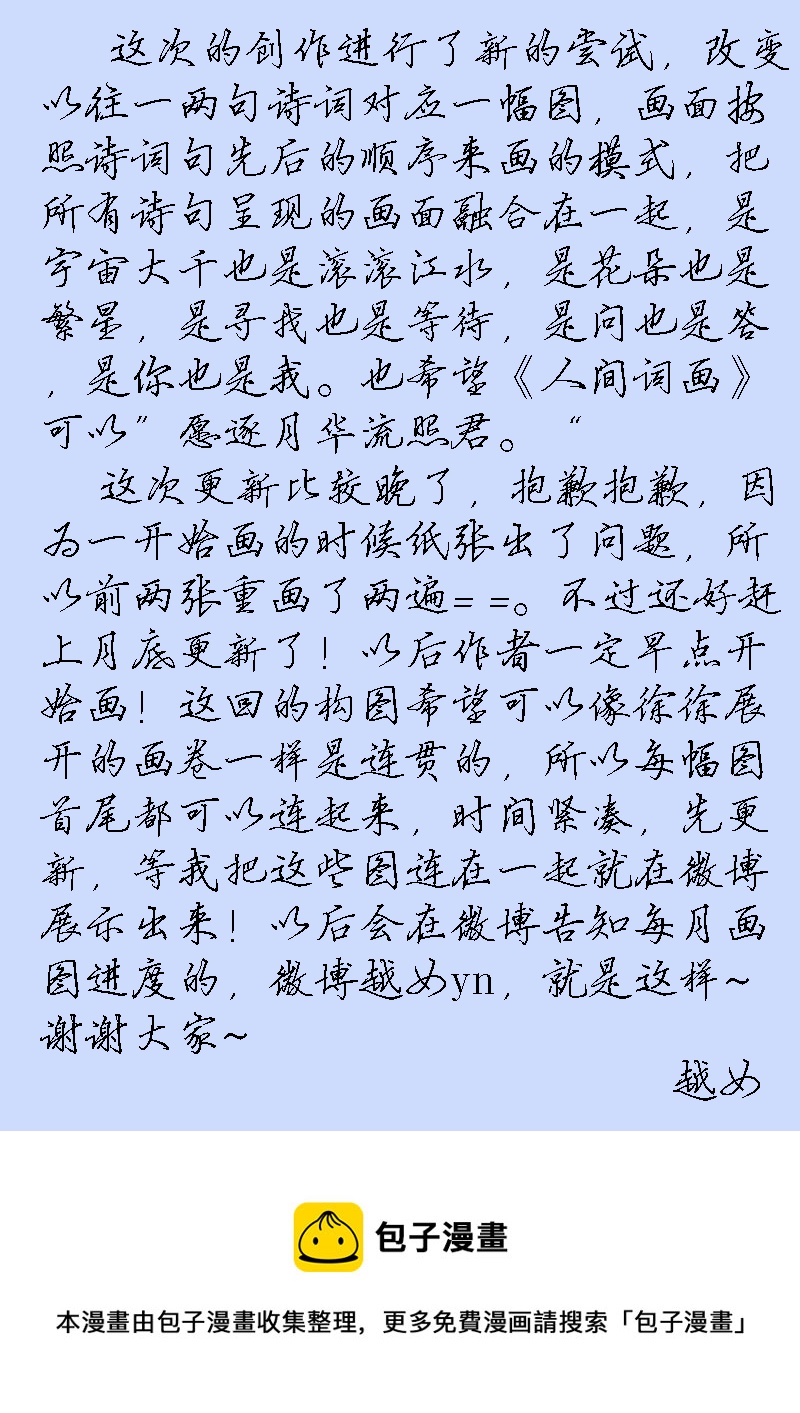 这次的创作进行了新的尝试，改变
以往一两句诗词对应一幅图，画面按
照诗词句先后的顺序来画的模式，把
所有诗句呈现的画面融合在一起，是
宇宙大千也是滚滚江水，是花朵也是
繁星，是寻找也是等待，是问也是答
，是你也是我。也希望《人间词画》
可以”愿逐月华流照君。“
这次更新比较晚了，抱歉抱歉，因
为一开始画的时候纸张出了问题，所
以前两张重画了两遍==。不过还好赶
上月底更新了！以后作者一定早点开
始画！这回的构图希望可以像徐徐展
开的画卷一样是连贯的，所以每幅图
首尾都可以连起来，时间紧凑，先更
新，等我把这些图连在一起就在微博
展示出来！以后会在微博告知每月画
图进度的，微博越女yn，就是这样~
谢谢大家~
越女
包子漫畫
本漫畫由包子漫畫收集整理，更多免費漫画請搜索「包子漫畫」